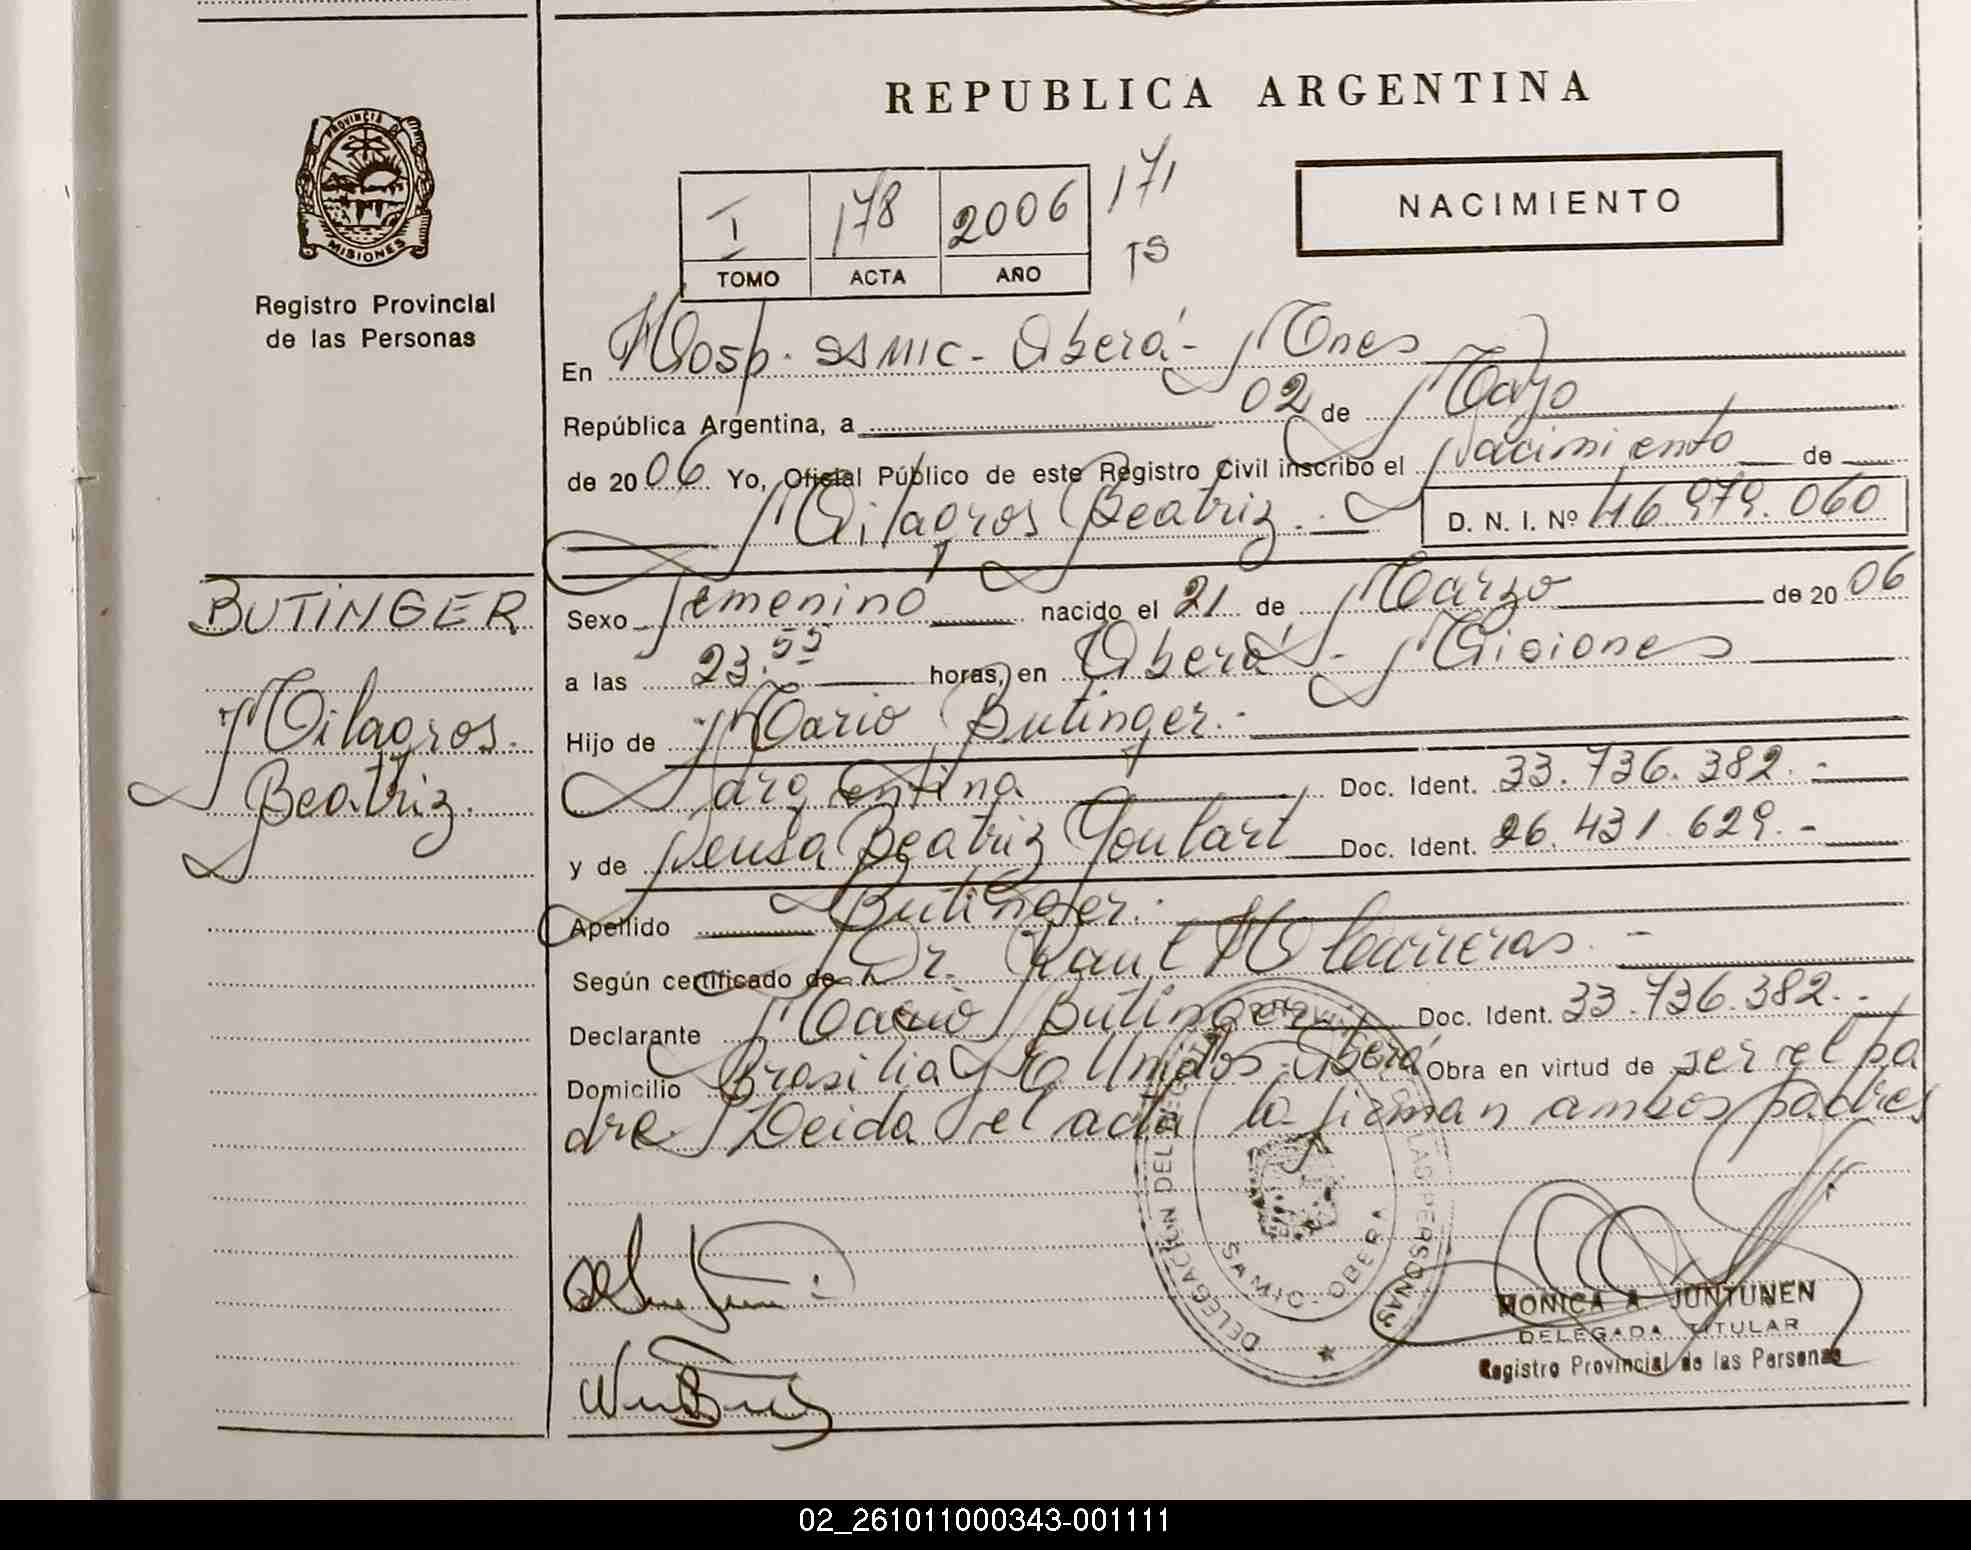 REPUBLICA ARGENTINA
PROVINCIA DE
MISIONES
Registro Provincial
de las Personas
I 178 2006 171
TOMO ACTA AÑO TS
NACIMIENTO
En Hosp. SAMIC - Oberá - Mnes
República Argentina, a 02 de Mayo
de 2006 Yo, Oficial Público de este Registro Civil inscribo el Nacimiento de
Milagros Beatriz.- D. N. I. Nº 46 979.060
BUTINGER
Milagros
Beatriz.
Sexo femenino nacido el 21 de Marzo de 2006
a las 23.55 horas, en Oberá - Misiones
Hijo de Mario Butinger.-
Argentina Doc. Ident. 33.736.382.-
y de Neusa Beatriz Goulart Doc. Ident. 26.431.629.-
Apellido Butinger.-
Según certificado de Dr. Raul H Carreras.-
Declarante Mario Butinger Doc. Ident. 33.736.382.-
Domicilio Brasilia y E Unidos - Oberá Obra en virtud de ser el pa
dre. Leida el acta la firman ambos padres
DELEGACIÓN DEL REGISTRO PROVINCIAL DE LAS PERSONAS
SAMIC - OBERA
MONICA A. JUNTUNEN
DELEGADA TITULAR
Registro Provincial de las Personas
02_261011000343-001111